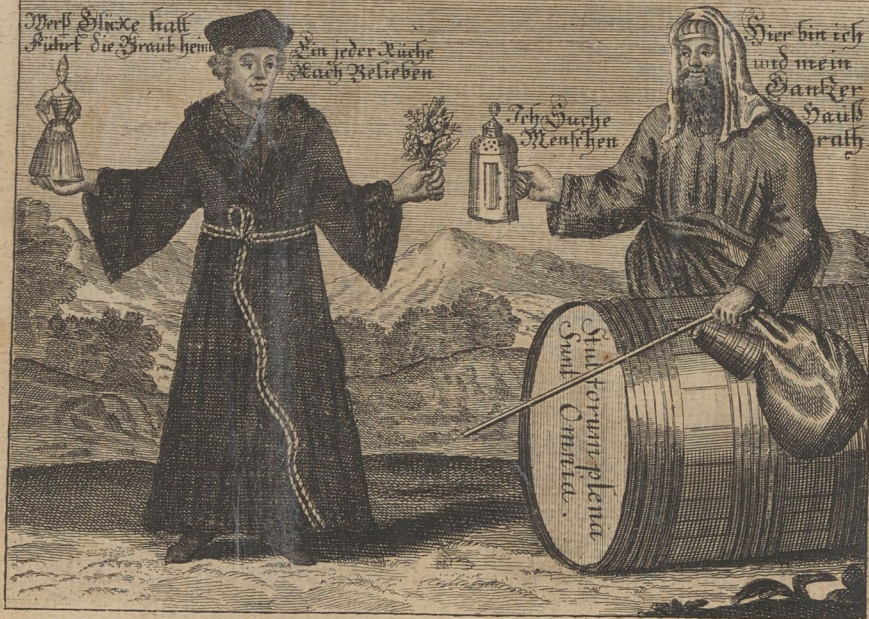 Werß Glücke hatt
Führt die Braut heim
Ein jeder Rüche
Nach Belieben
Ich Suche
Menschen
Hier bin ich
und mein
Gantzer
Hauß
rath
Stultorum plena
Sunt Omnia.